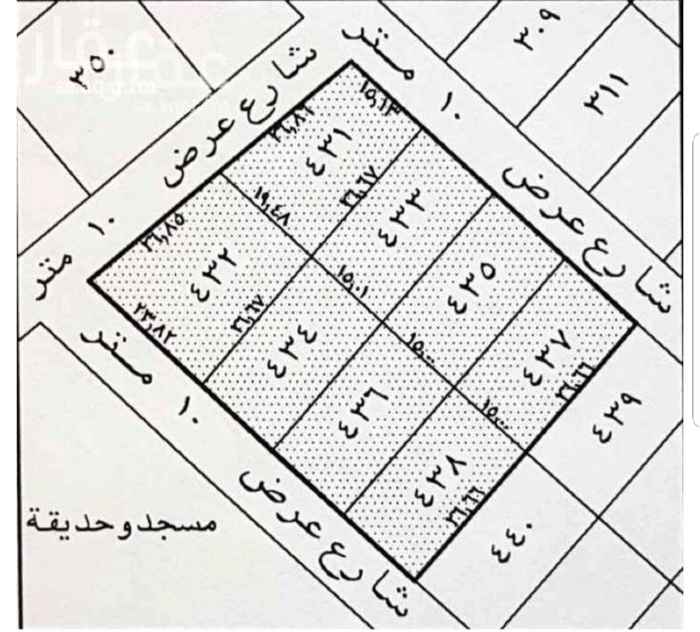 عقار
شارع عرض ١٠ متر
شارع عرض ١٠ متر
شارع عرض ١٠ متر
٣٥٠
٣٠٩
٣١١
٤٣١
٤٣٢
٤٣٣
٤٣٤
٤٣٥
٤٣٦
٤٣٧
٤٣٨
٤٣٩
٤٤٠
١٥,١٣
١٩,٤٨
٢٦,٦٧
٢٦,٨٥
٢٣,٨٢
٢٦,٦٧
١٥,٠١
١٥,٠٠
١٥,٠٠
٢٦,٦٦
٢٦,٦٦
مسجد وحديقة